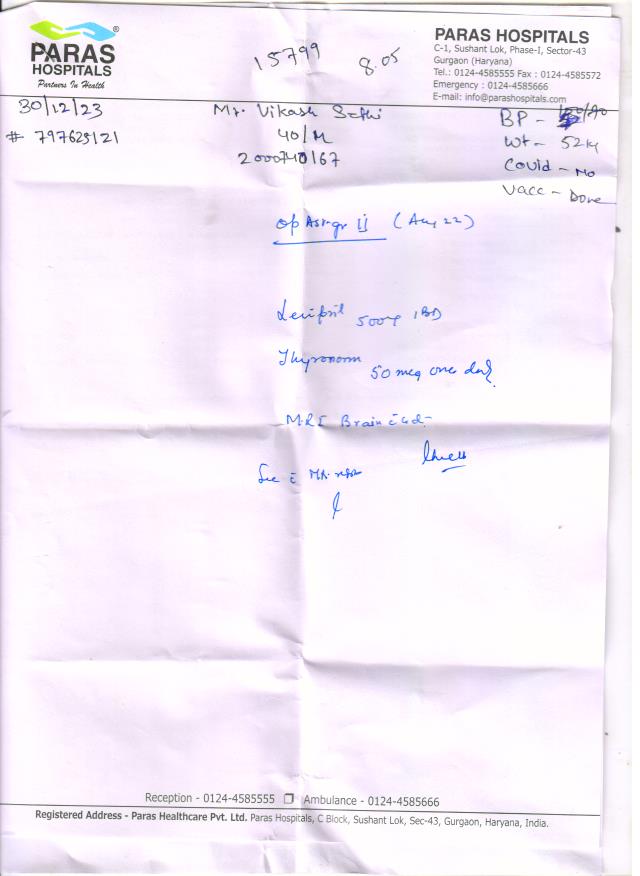 PARAS
HOSPITALS
Partners In Health
15799
8.05
PARAS HOSPITALS
C-1, Sushant Lok, Phase-I, Sector-43
Gurgaon (Haryana)
Tel.: 0124-4585555 Fax : 0124-4585572
Emergency : 0124-4585666
E-mail: info@parashospitals.com
30/12/23
# 797625121
Mr. Vikash Sethi
40/M
2000740167
BP -
Wt - 52 kg
Covid - No
Vacc - Done
Op Astrgr ii (Aug 22)
500mg 1BD
Thyronorm 50 mcg one daily
MRI Brain c̄ Gd
See c̄ MRI
Reception - 0124-4585555 ❒ Ambulance - 0124-4585666
Registered Address - Paras Healthcare Pvt. Ltd. Paras Hospitals, C Block, Sushant Lok, Sec-43, Gurgaon, Haryana, India.